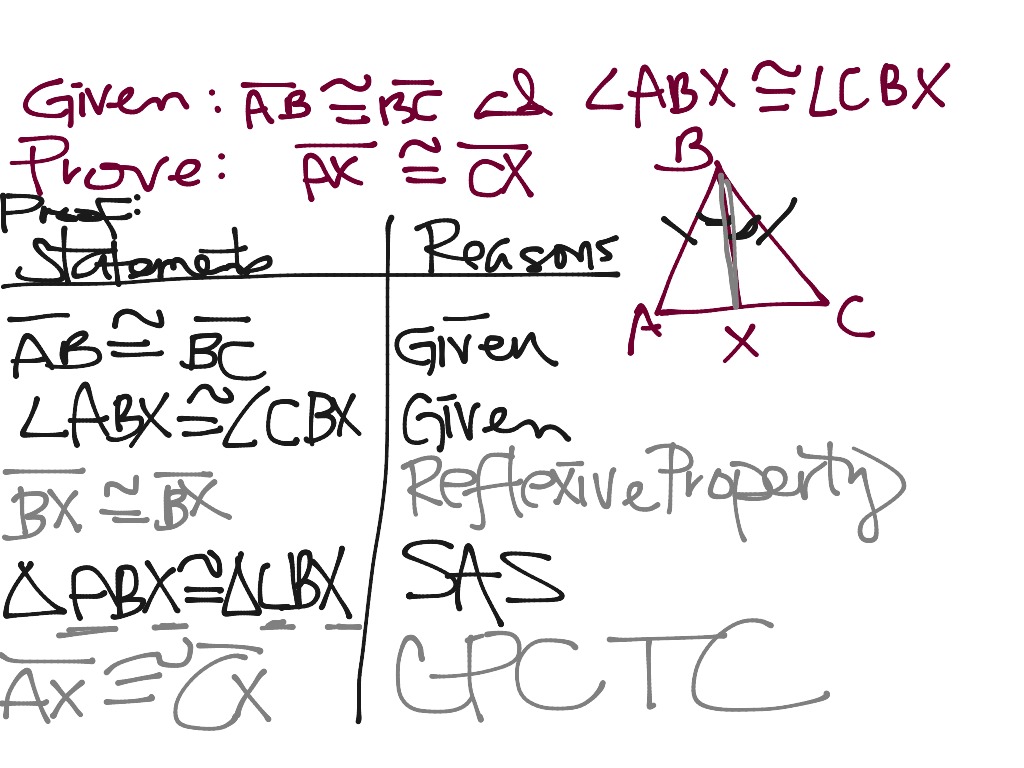 Given: AB ≅ BC and ∠ABX ≅ ∠CBX
Prove: AX ≅ CX
Proof:
Statements Reasons
AB ≅ BC Given
∠ABX ≅ ∠CBX Given
BX ≅ BX Reflexive Property
ΔABX ≅ ΔCBX SAS
AX ≅ CX CPCTC
B
A X C